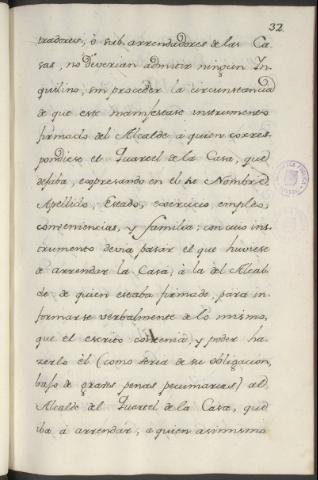 32
tradores, ò sub-arrendadores de las Ca
sas, no deverian admitir ningun In
quilino, sin proceder la circunstancia
de que este manifestase instrumento
firmado del Alcalde à quien corres
pondiese el Quartel de la Casa, que
dejaba, expresando en el se Nombre
Apellido, Estado, exercicio, empleo,
conveniencias, y familia; con cuio ins
trumento devia pasar el que huviese
de arrendar la Casa, à la del Alcal
de de quien estaba firmado, para in
formarse verbalmente de lo mismo,
que el escrito contenia, y poder ha
zerlo èl (como seria de su obligacion,
bajo de graves penas pecuniarias) al
Alcalde del Quartel de la Casa, que
iba à arrendar, a quien asimismo